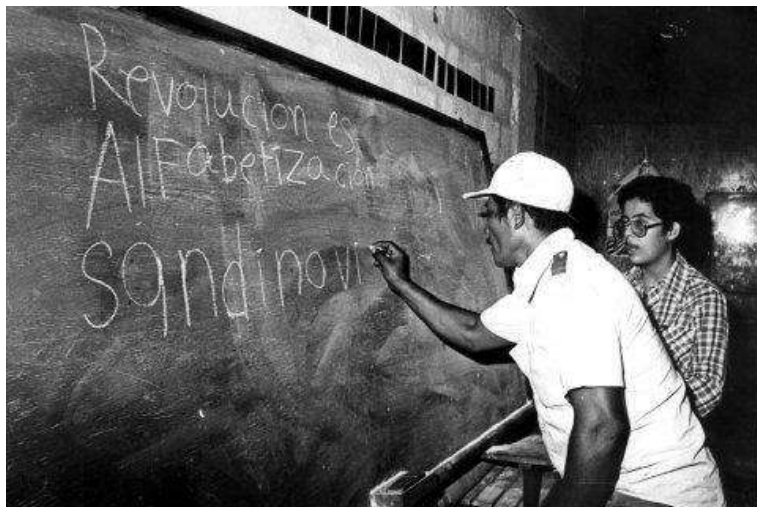 Revolucion es
AlFabetización
sandino vi